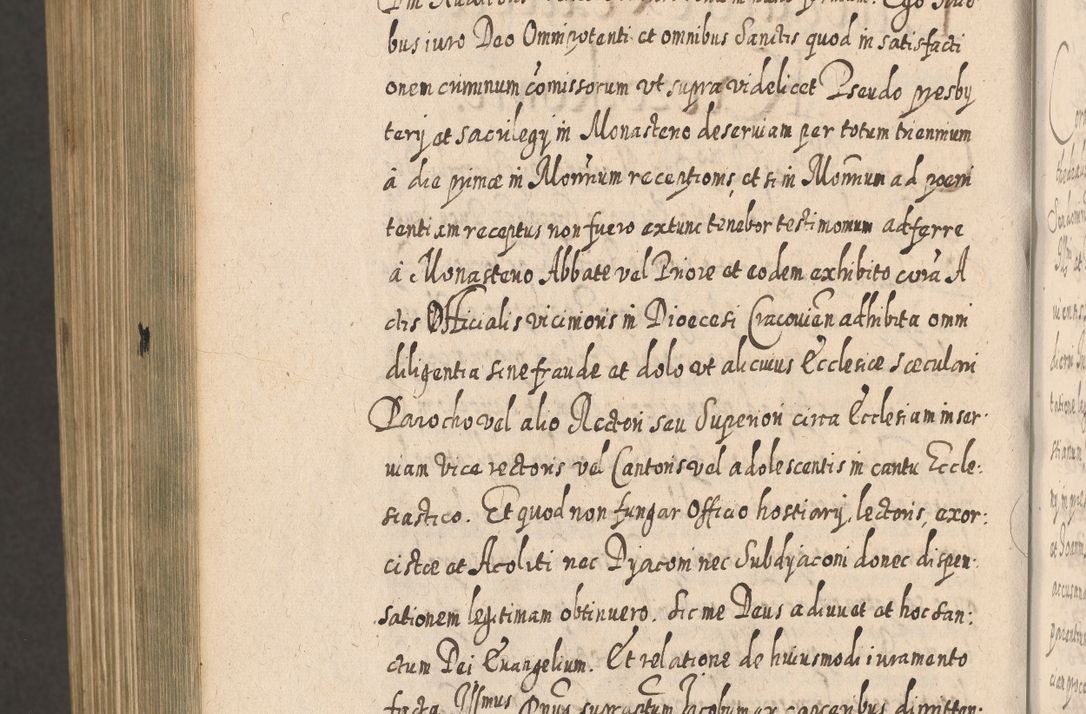 bus iuro Deo Omnipotenti et omnibus Sanctis quod in satisfacti
onem criminum cõmissorum ut supra videlicet Pseudo presby
terij et sacrilegij in Monasterio deseruiam per totum triennium
à die primæ in Monrium receptionis, et si in Monrium ad poeni
tentiam receptus non fuero extunc tenebor testimonium adferre
à Monasterio Abbate vel Priore et eodem exhibito corã A
ctis Officialis vicinioris in Dioecesi Cracouien adhibita omni
diligentia sine fraude et dolo ut alicuius Ecclesiæ sæculari
Parocho vel alio Rectori seu Superiori circa Ecclesiam inser:
uiam vice rectoris vel Cantoris vel adolescentis in cantu Eccle:
siastico. Et quod non fungar Officio hostiarij, lectoris, exor:
cistæ et Acoliti nec Dyaconi nec Subdyaconi donec dispen:
sationem legitimam obtinuero. Sic me Deus adiuuet et hoc San:
ctum Dei Euangelium. Et relatione de huiusmodi iuramento
facta Illmus Dnus supradictum Jacobum ex carceribus dimitten: